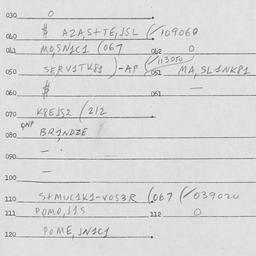 030 0
040 $ A2A,S+TE,JSL (/109060
041 MO,SN1C1 (067 042 0
050 SERV1TK81 )-AP (/113050 051 MA,SL1NK81
060 $ 061 —
070 K8EJS2 (212
080 BR1NDZE
090 —
100 —
110 S+MUC1K1-VOS3R (067 (/039020
111 POMO,J1S 112 0
120 POME,JN1C1